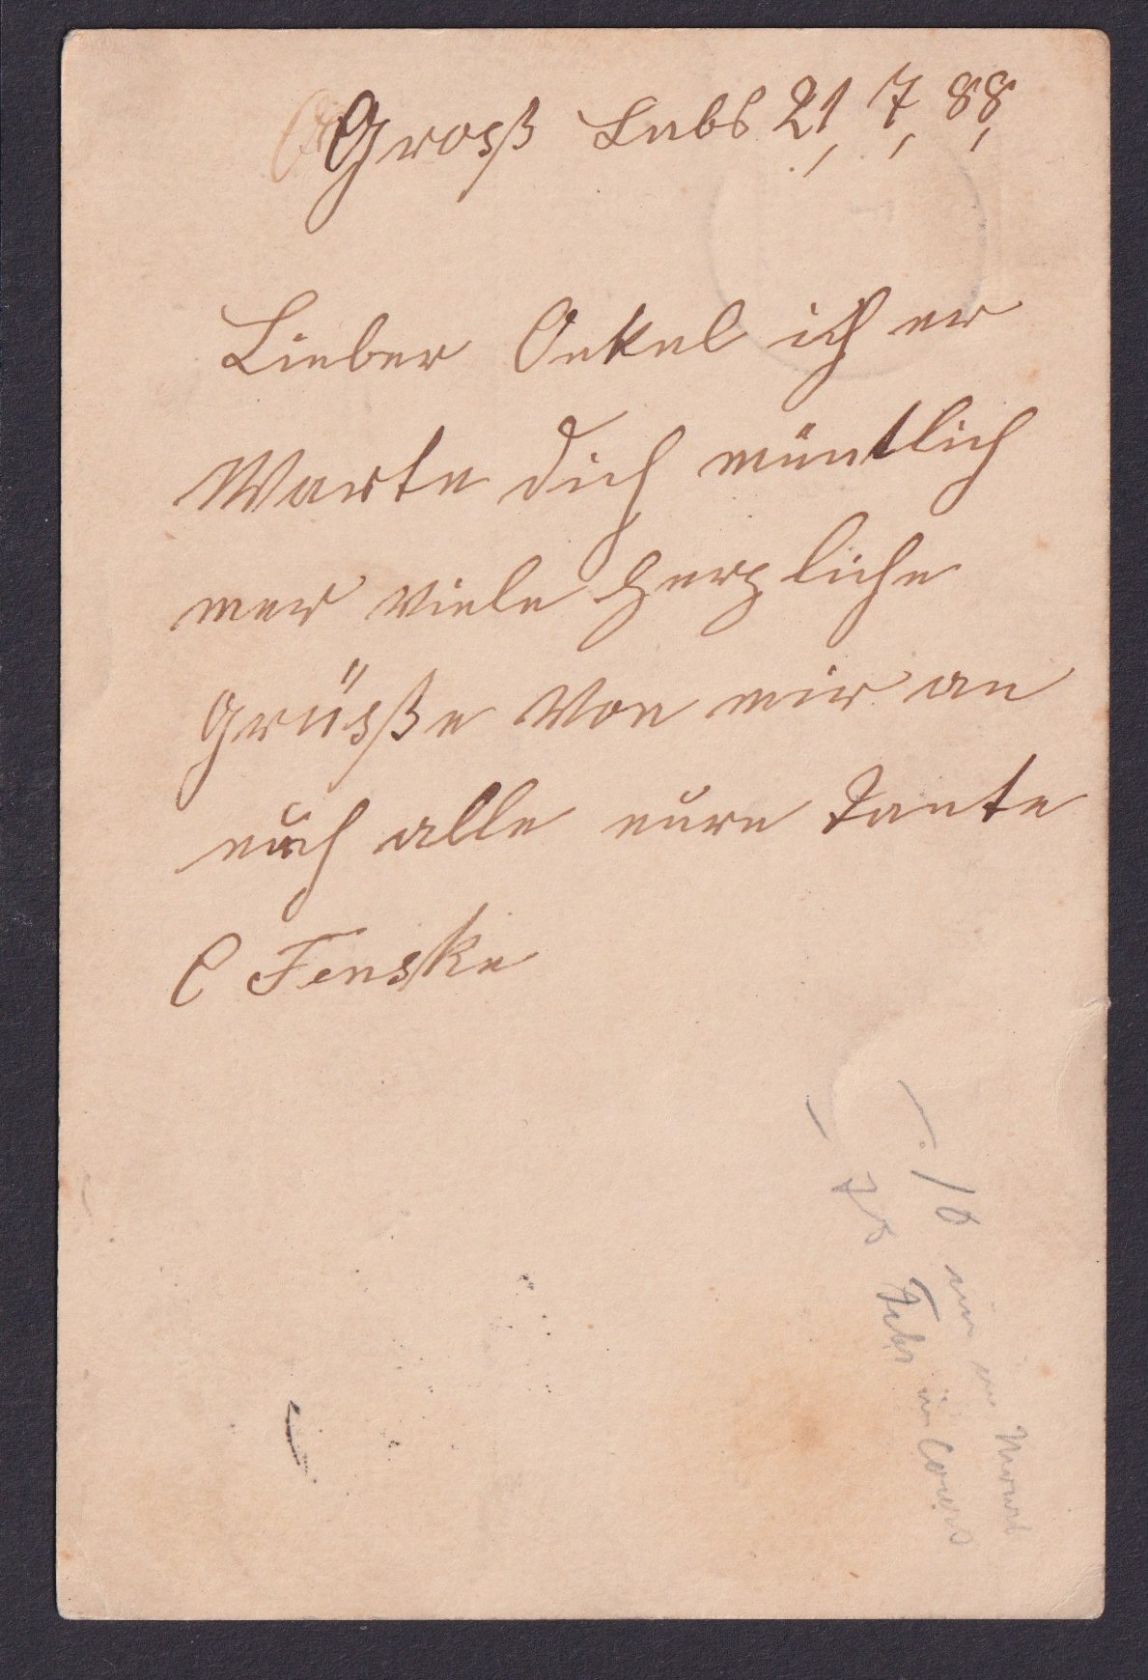 Gross Labs 21, 7, 88,
Lieber Onkel ich er
Warte dich müntlich
mer viele Herzliche
Grüsße Von mir an
euch alle eure Tante
C Fenske
10